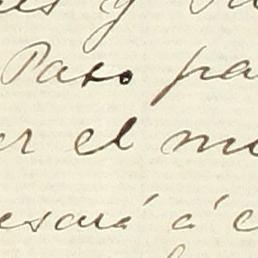 y
Paso pa
er el mo
esará á c